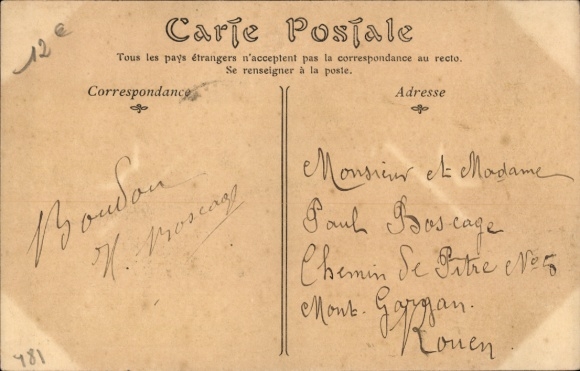 12 e
Carte Postale
Tous les pays étrangers n'acceptent pas la correspondance au recto.
Se renseigner à la poste.
Correspondance
Adresse
Boudou
H. Boscage
Monsieur et Madame
Paul Boscage
Chemin de Pitre No 8
Mont. Gargan.
Rouen
481